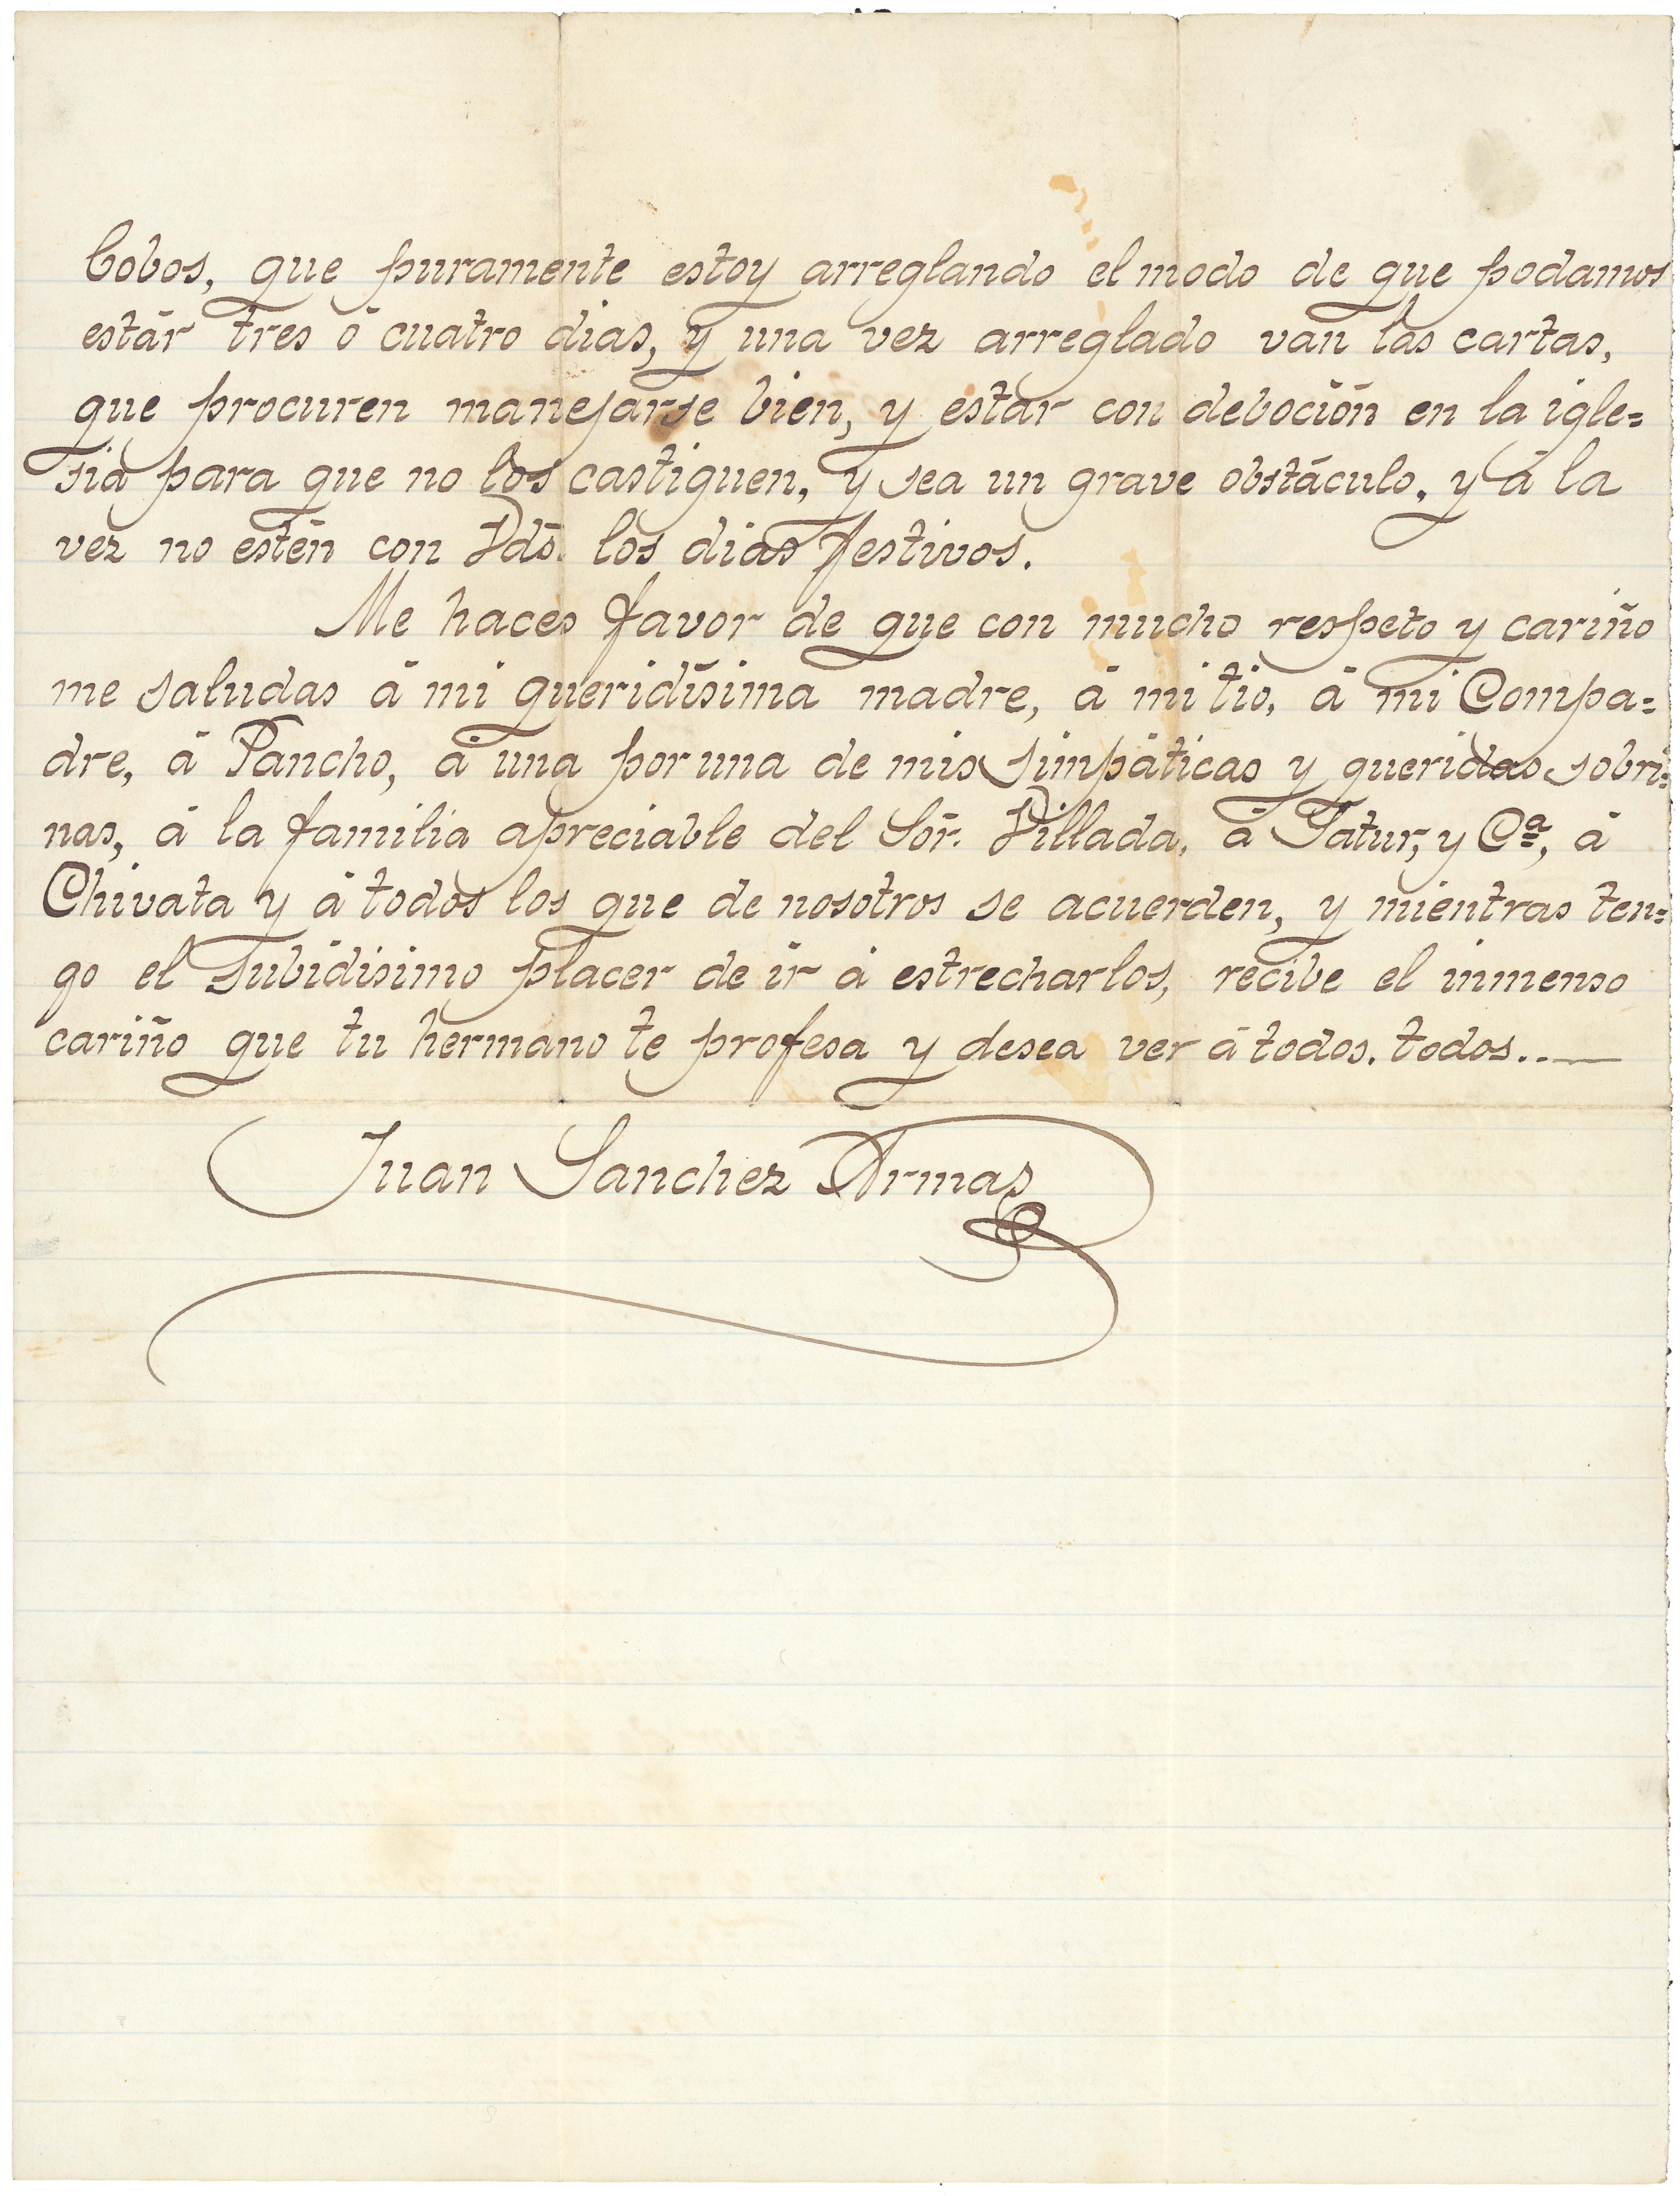 Cobos, que puramente estoy arreglando el modo de que podamos
estár tres ó cuatro dias, y una vez arreglado van las cartas,
que procuren manejarse bien, y estár con deboción en la igle=
sia para que no los castiguen, y sea un grave obstáculo, y á la
vez no estén con Vds. los dias festivos.
Me haces favor de que con mucho respeto y cariño
me saludas á mi queridísima madre, á mi tio, á mi Compa=
dre, á Pancho, á una por una de mis simpáticas y queridas sobri=
nas, á la familia apreciable del Sór. Villada, á Tatur, y Cª, á
Chivata y á todos los que de nosotros se acuerden, y mientras ten=
go el subidisimo placer de ir á estrecharlos, recibe el inmenso
cariño que tu hermano te profesa y desea ver á todos. todos..—
Juan Sanchez Armas